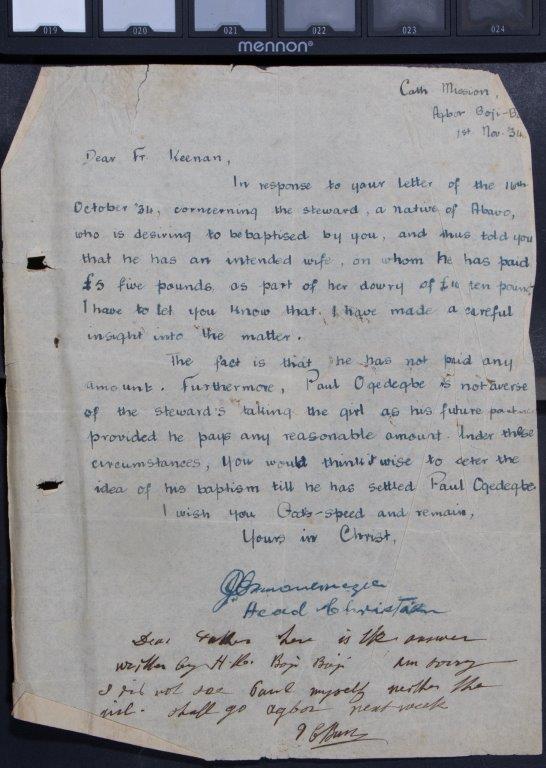 019 020 021 022 023 024
mennon®
Cath Mission,
Agbor Boji-B
1st Nov. 34
Dear Fr. Keenan,
In response to your letter of the 16th
October '34, corncerning the steward, a native of Abavo,
who is desiring to be baptised by you, and thus told you
that he has an intended wife, on whom he has paid
£5 five pounds as part of her dowry of £10 ten pound
I have to let you know that I have made a careful
insight into the matter.
The fact is that he has not paid any
amount. Furthermore, Paul Ogedegbe is not averse
of the steward's taking the girl as his future partner
provided he pays any reasonable amount. Under these
circumstances, you would think it wise to defer the
idea of his baptism till he has settled Paul Ogedegbe
I wish you God's-speed and remain,
Yours in Christ,
Head Christian
Dear Father here is the answer
written by H. Boji Boji am sorry
I did not see Paul myself neither the
girl. shall go Agbor next week